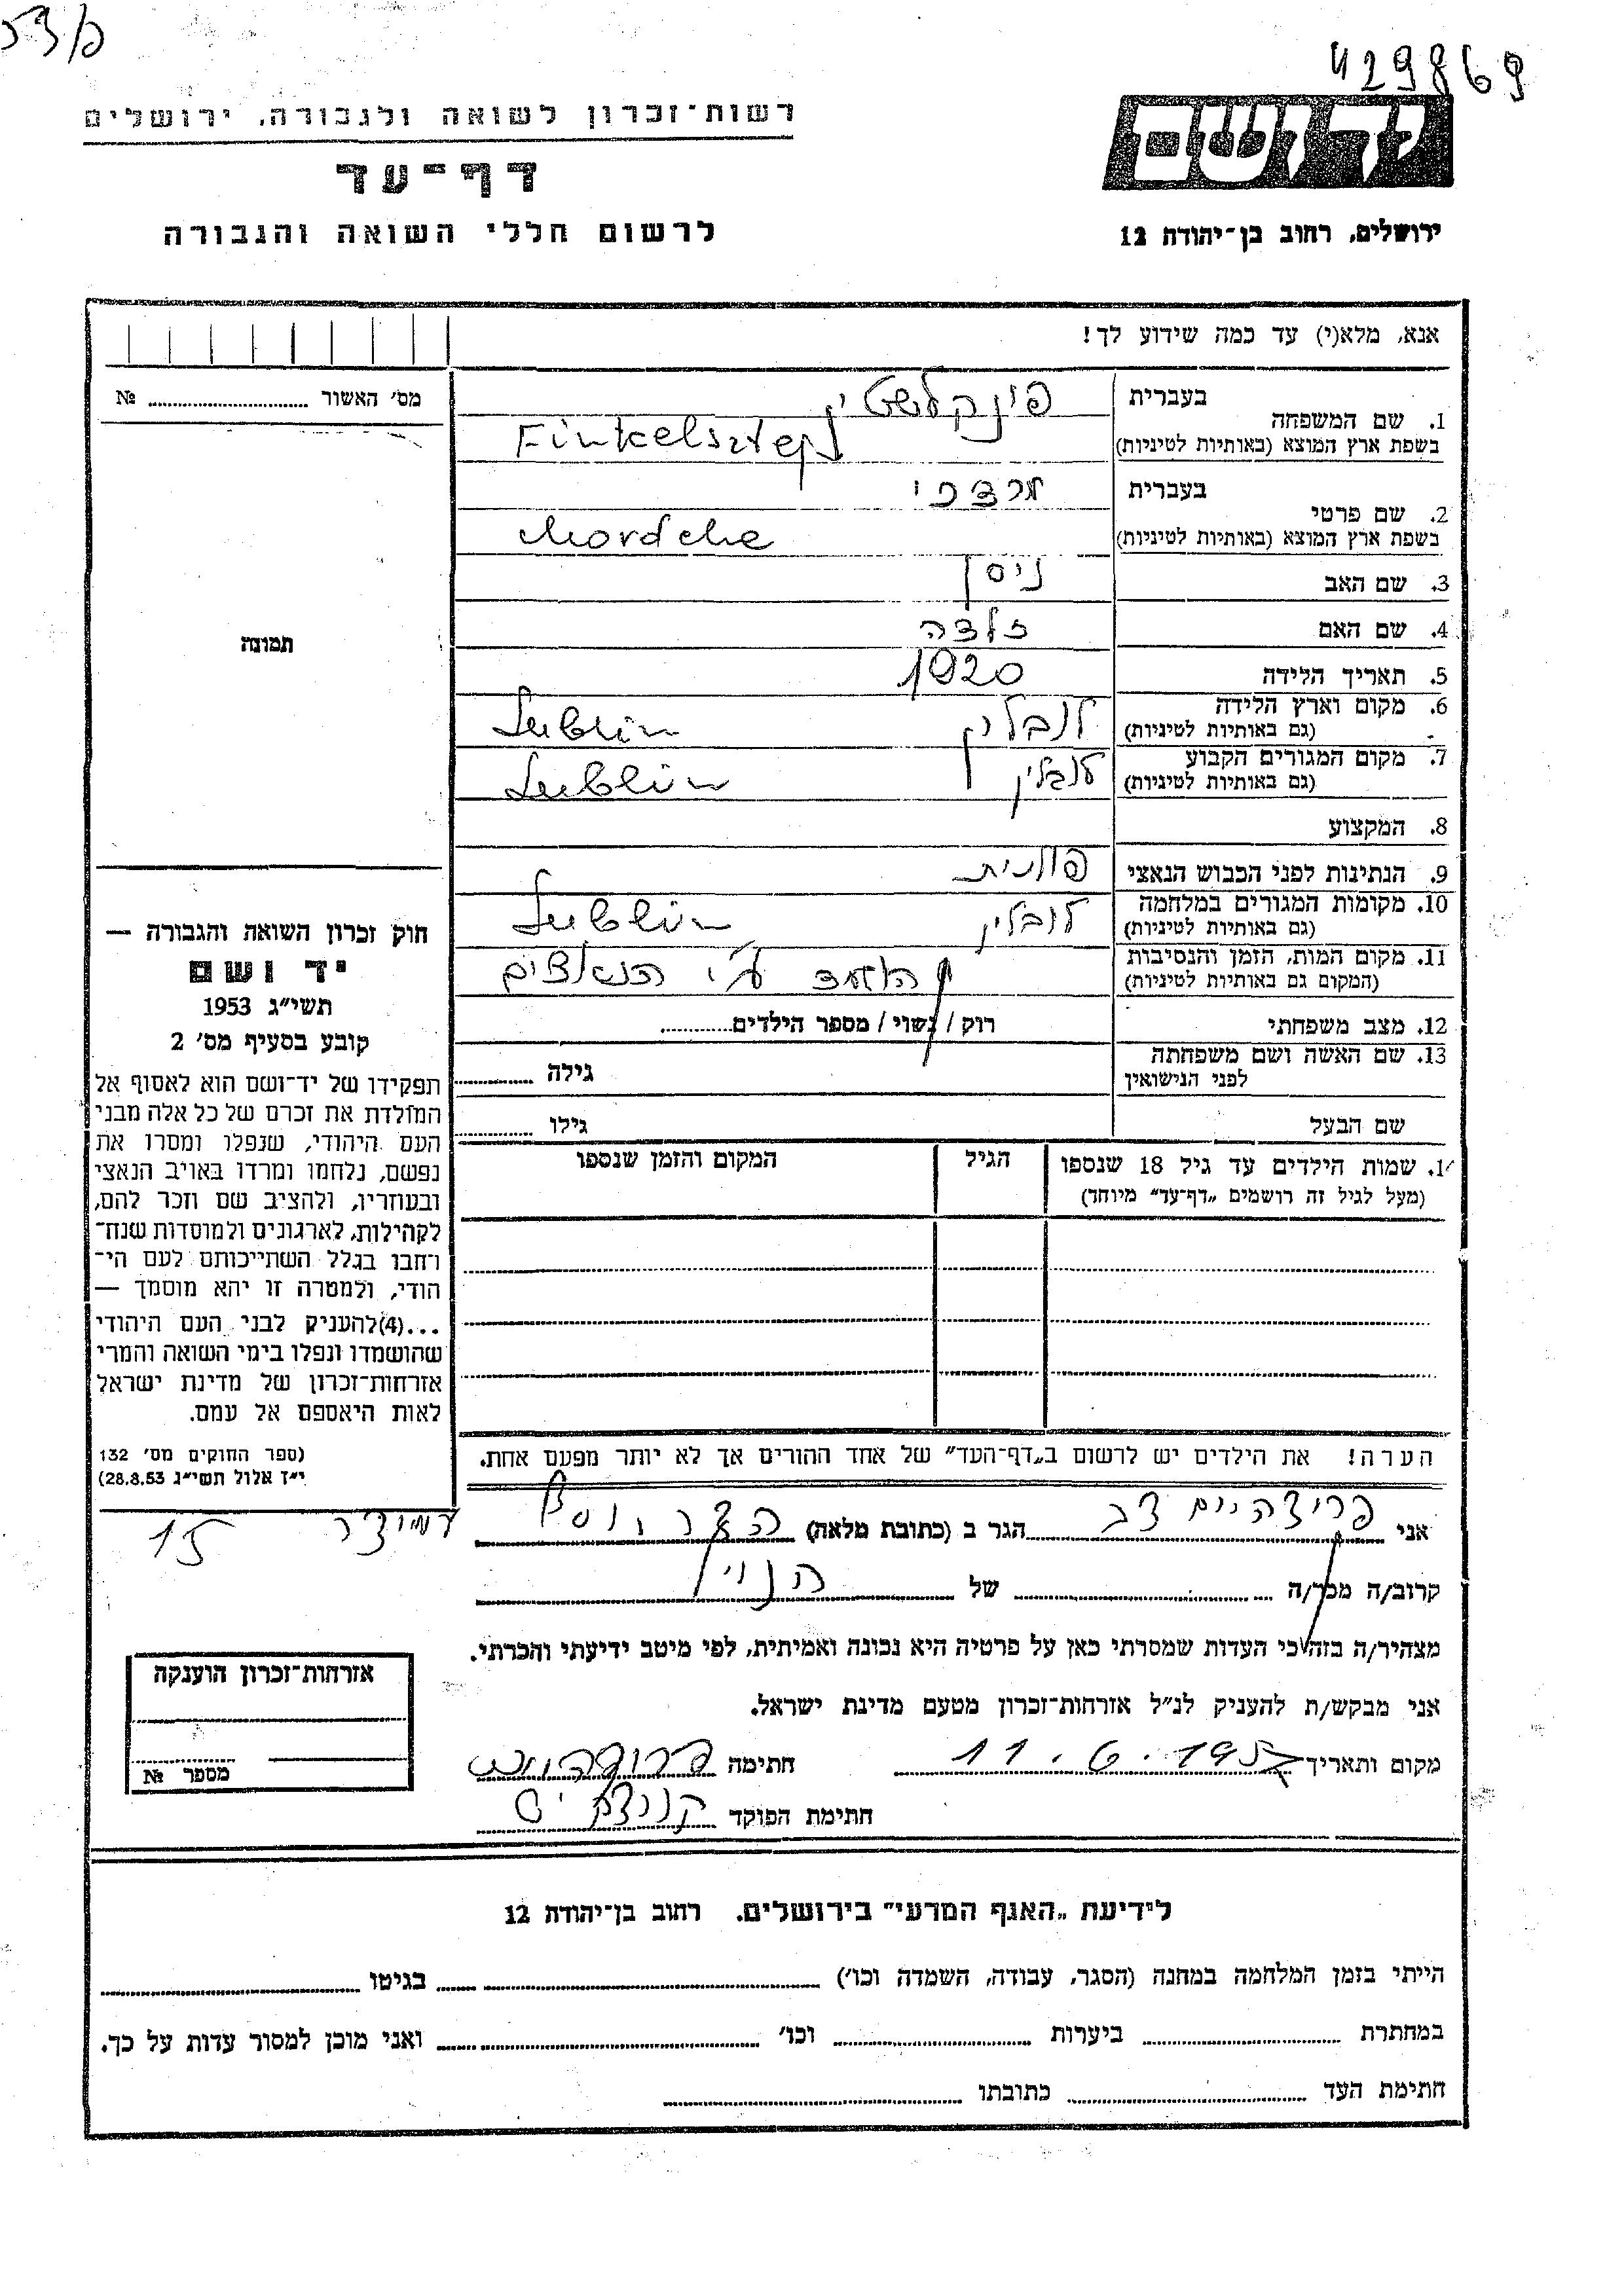 429869
רשות־זכרון לשואה ולגבורה, ירושלים
דף־עד
לרשום חללי השואה והגבורה
יד ושם
ירושלים, רחוב בן־יהודה 12
אנא, מלא(י) עד כמה שידוע לך!
מס' האשור № 
1. שם המשפחה בעברית פינקלשטין
בשפת ארץ המוצא (באותיות לטיניות) Finkelsztejn
2. שם פרטי בעברית מרדכי
בשפת ארץ המוצא (באותיות לטיניות) Mordche
3. שם האב ניסן
4. שם האם זלדה
5. תאריך הלידה 1920
6. מקום וארץ הלידה לובלין Lublin
(גם באותיות לטיניות)
7. מקום המגורים הקבוע לובלין Lublin
(גם באותיות לטיניות)
8. המקצוע
9. הנתינות לפני הכבוש הנאצי פולנית
10. מקומות המגורים במלחמה לובלין Lublin
(גם באותיות לטיניות)
11. מקום המות, הזמן והנסיבות הושמד ע"י הנאצים
(המקום גם באותיות לטיניות)
12. מצב משפחתי רוק / נשוי / מספר הילדים
13. שם האשה ושם משפחתה גילה
לפני הנישואין
שם הבעל גילו
14. שמות הילדים עד גיל 18 שנספו הגיל המקום והזמן שנספו
(מעל לגיל זה רושמים „דף־עד" מיוחד)
הערה! את הילדים יש לרשום ב„דף־העד" של אחד ההורים אך לא יותר מפעם אחת.
תמונה
חוק זכרון השואה והגבורה —
יד ושם
תשי"ג 1953
קובע בסעיף מס' 2
תפקידו של יד־ושם הוא לאסוף אל
המולדת את זכרם של כל אלה מבני
העם היהודי, שנפלו ומסרו את
נפשם, נלחמו ומרדו באויב הנאצי
ובעוזריו, ולהציב שם וזכר להם,
לקהילות, לארגונים ולמוסדות שנח־
רחבו בגלל השתייכותם לעם הי־
הודי, ולמטרה זו יהא מוסמך —
...(4)להעניק לבני העם היהודי
שהושמדו ונפלו בימי השואה והמרי
אזרחות־זכרון של מדינת ישראל
לאות היאספם אל עמם.
(ספר החוקים מס' 132
י"ז אלול תשי"ג 28.8.53)
אני דב הגר ב (כתובת מלאה) 15
קרוב/ה מכר/ה של
מצהיר/ה בזה כי העדות שמסרתי כאן על פרטיה היא נכונה ואמיתית, לפי מיטב ידיעתי והכרתי.
אני מבקש/ת להעניק לנ"ל אזרחות־זכרון מטעם מדינת ישראל.
מקום ותאריך 11.6.1957 חתימה
חתימת הפוקד
אזרחות־זכרון הוענקה
מספר №
לידיעת „האגף המדעי" בירושלים. רחוב בן־יהודה 12
הייתי בזמן המלחמה במחנה (הסגר, עבודה, השמדה וכו') בגיטו
במחתרת ביערות וכו' ואני מוכן למסור עדות על כך.
חתימת העד כתובתו